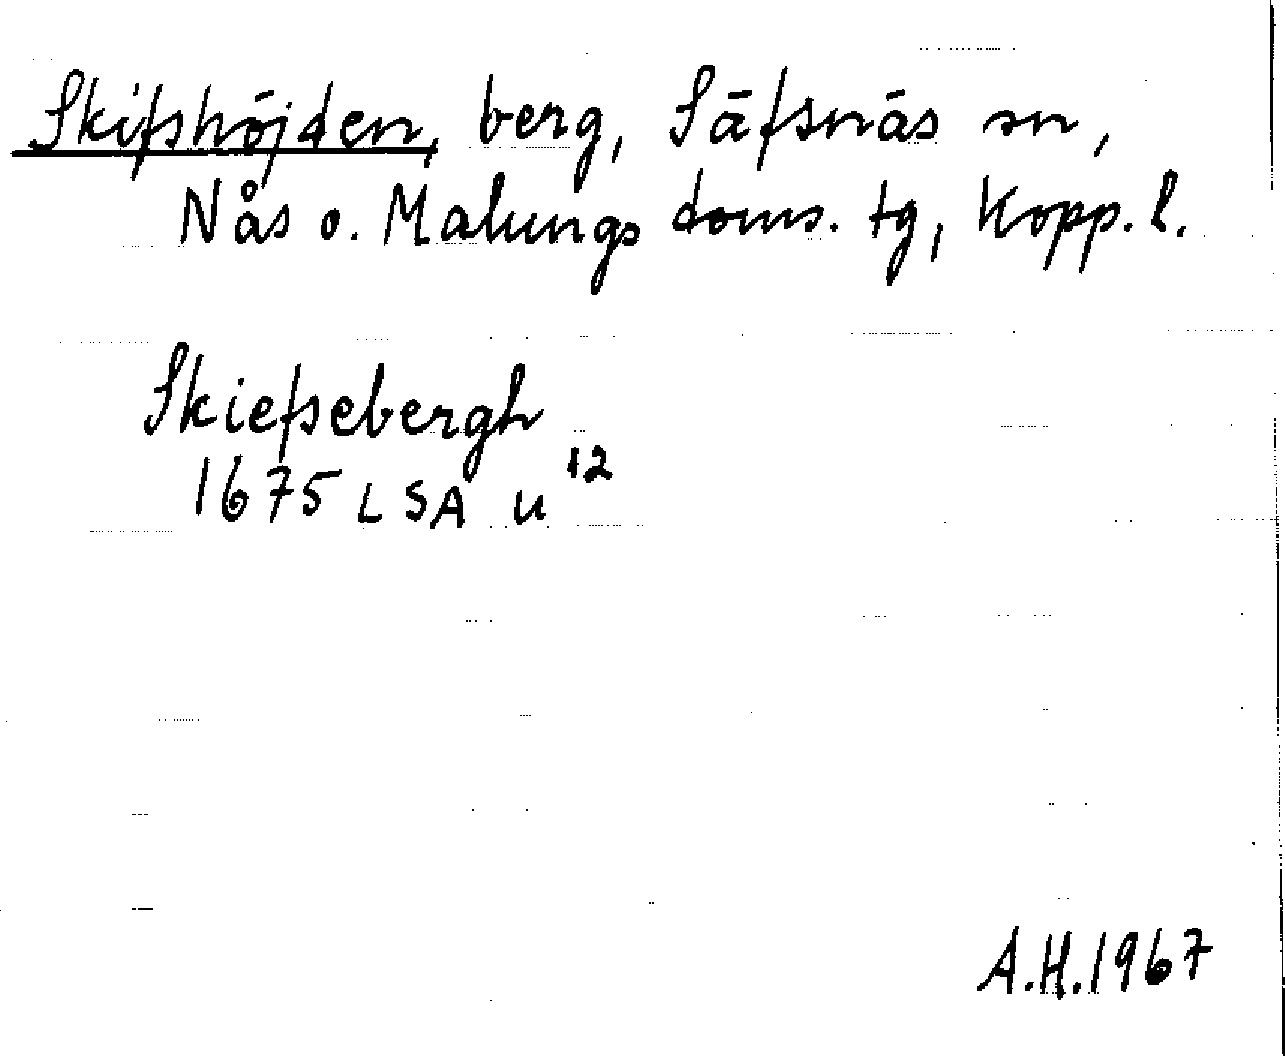 Skifshöjden, berg, Säfsnäs sn,
Nås o. Malungs doms. tg, Kopp. l.
Skiefsebergh
1675 LSA U 12
A.H. 1967